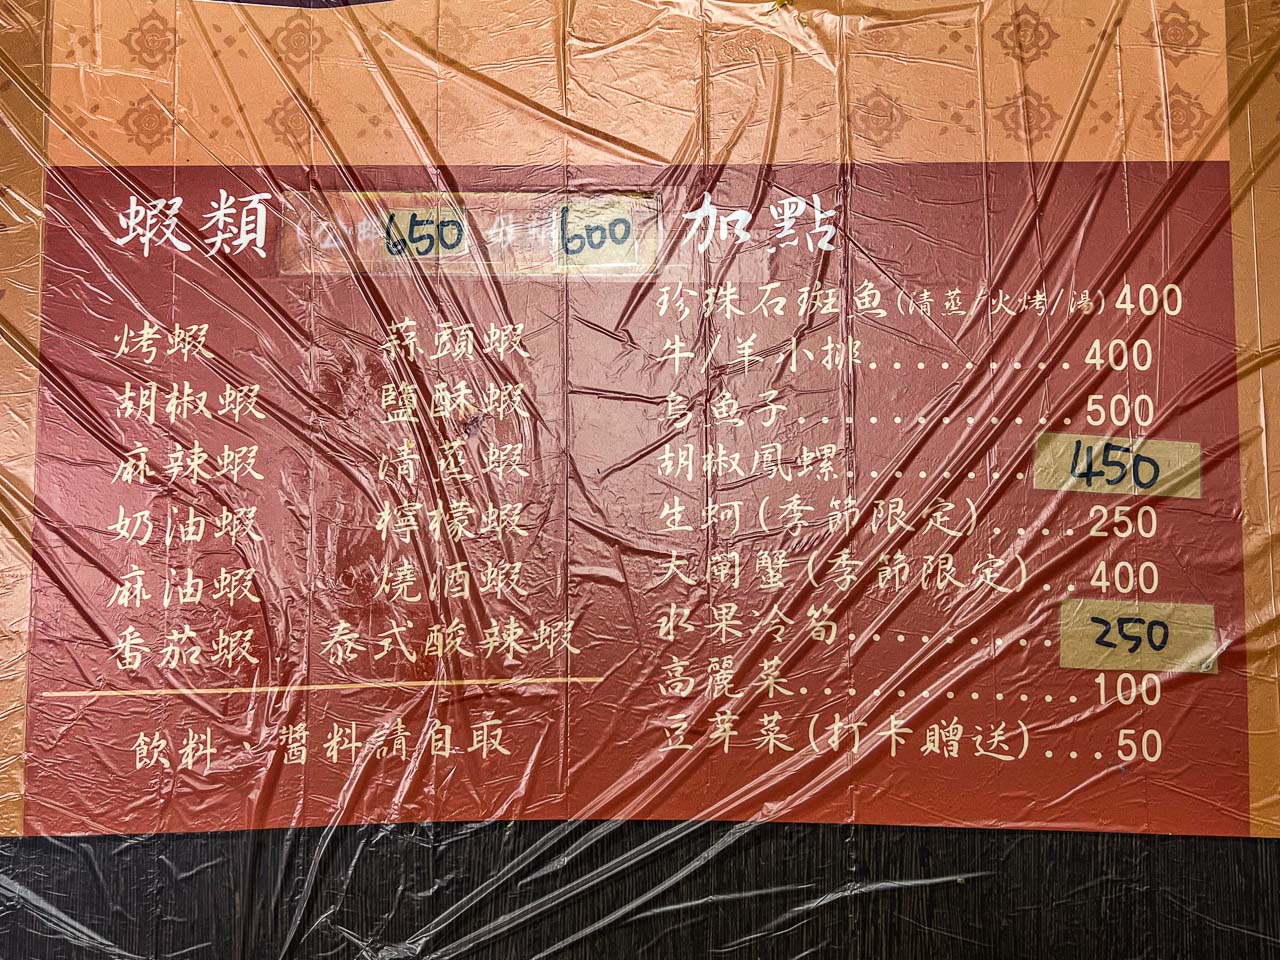 蝦類 650 600
烤蝦 蒜頭蝦
胡椒蝦 鹽酥蝦
麻辣蝦 清蒸蝦
奶油蝦 檸檬蝦
麻油蝦 燒酒蝦
番茄蝦 泰式酸辣蝦
飲料、醬料請自取
加點
珍珠石斑魚(清蒸/火烤/湯)400
牛/羊小排.........400
烏魚子............500
胡椒鳳螺........450
生蚵(季節限定)....250
大閘蟹(季節限定)..400
水果冷筍.........250
高麗菜............100
豆芽菜(打卡贈送)...50